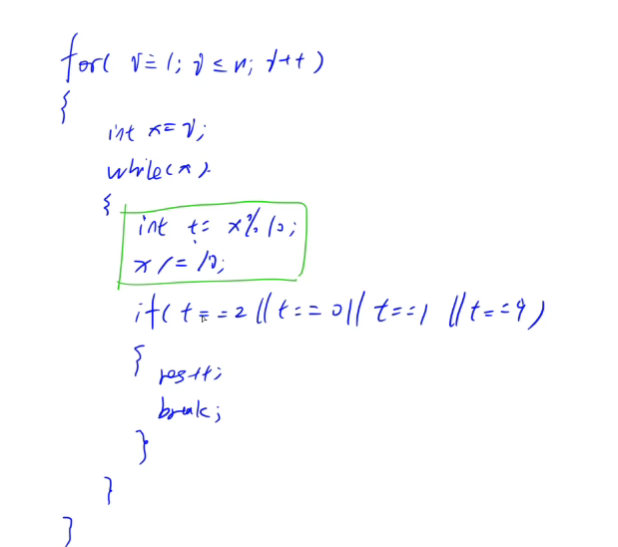 for( i=1; i≤n; i++)
{
int x=i;
while(x)
{
int t= x%10;
x/=10;
if( t==2 || t==0 || t==1 || t==9)
{
res++;
break;
}
}
}